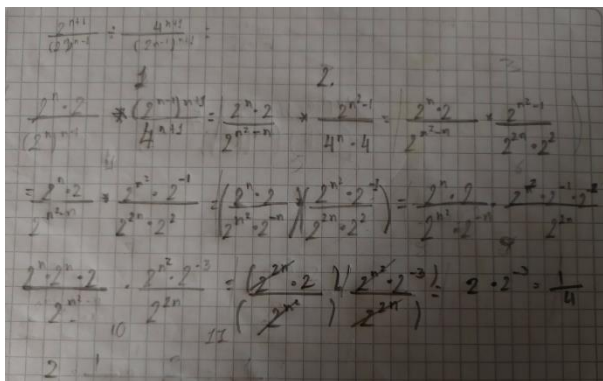 2^{n+1}/(2^n)^{n-1} ÷ 4^{n+1}/(2^{n-1})^{n+1} =
1. 2.
2^n·2/(2^n)^{n-1} * (2^{n-1})^{n+1}/4^{n+1} = (2^n·2/2^{n²-n} * 2^{n²-1}/4^n·4 = (2^n·2/2^{n²-n} * 2^{n²-1}/2^{2n}·2²)
= 2^n·2/2^{n²-n} * 2^{n²}·2^{-1}/2^{2n}·2² = (2^n·2/2^{n²}·2^{-n})*(2^{n²}·2^{-1}/2^{2n}·2²) = 2^n·2/2^{n²}·2^{-n} · 2^{n²}·2^{-1}·2^{-2}/2^{2n}
2^n·2^n·2/2^{n²} · 2^{n²}·2^{-3}/2^{2n} = (2^{2n}·2/2^{n²})(2^{n²}·2^{-3}/2^{2n}) = 2·2^{-3} = 1/4
10 11
2 1